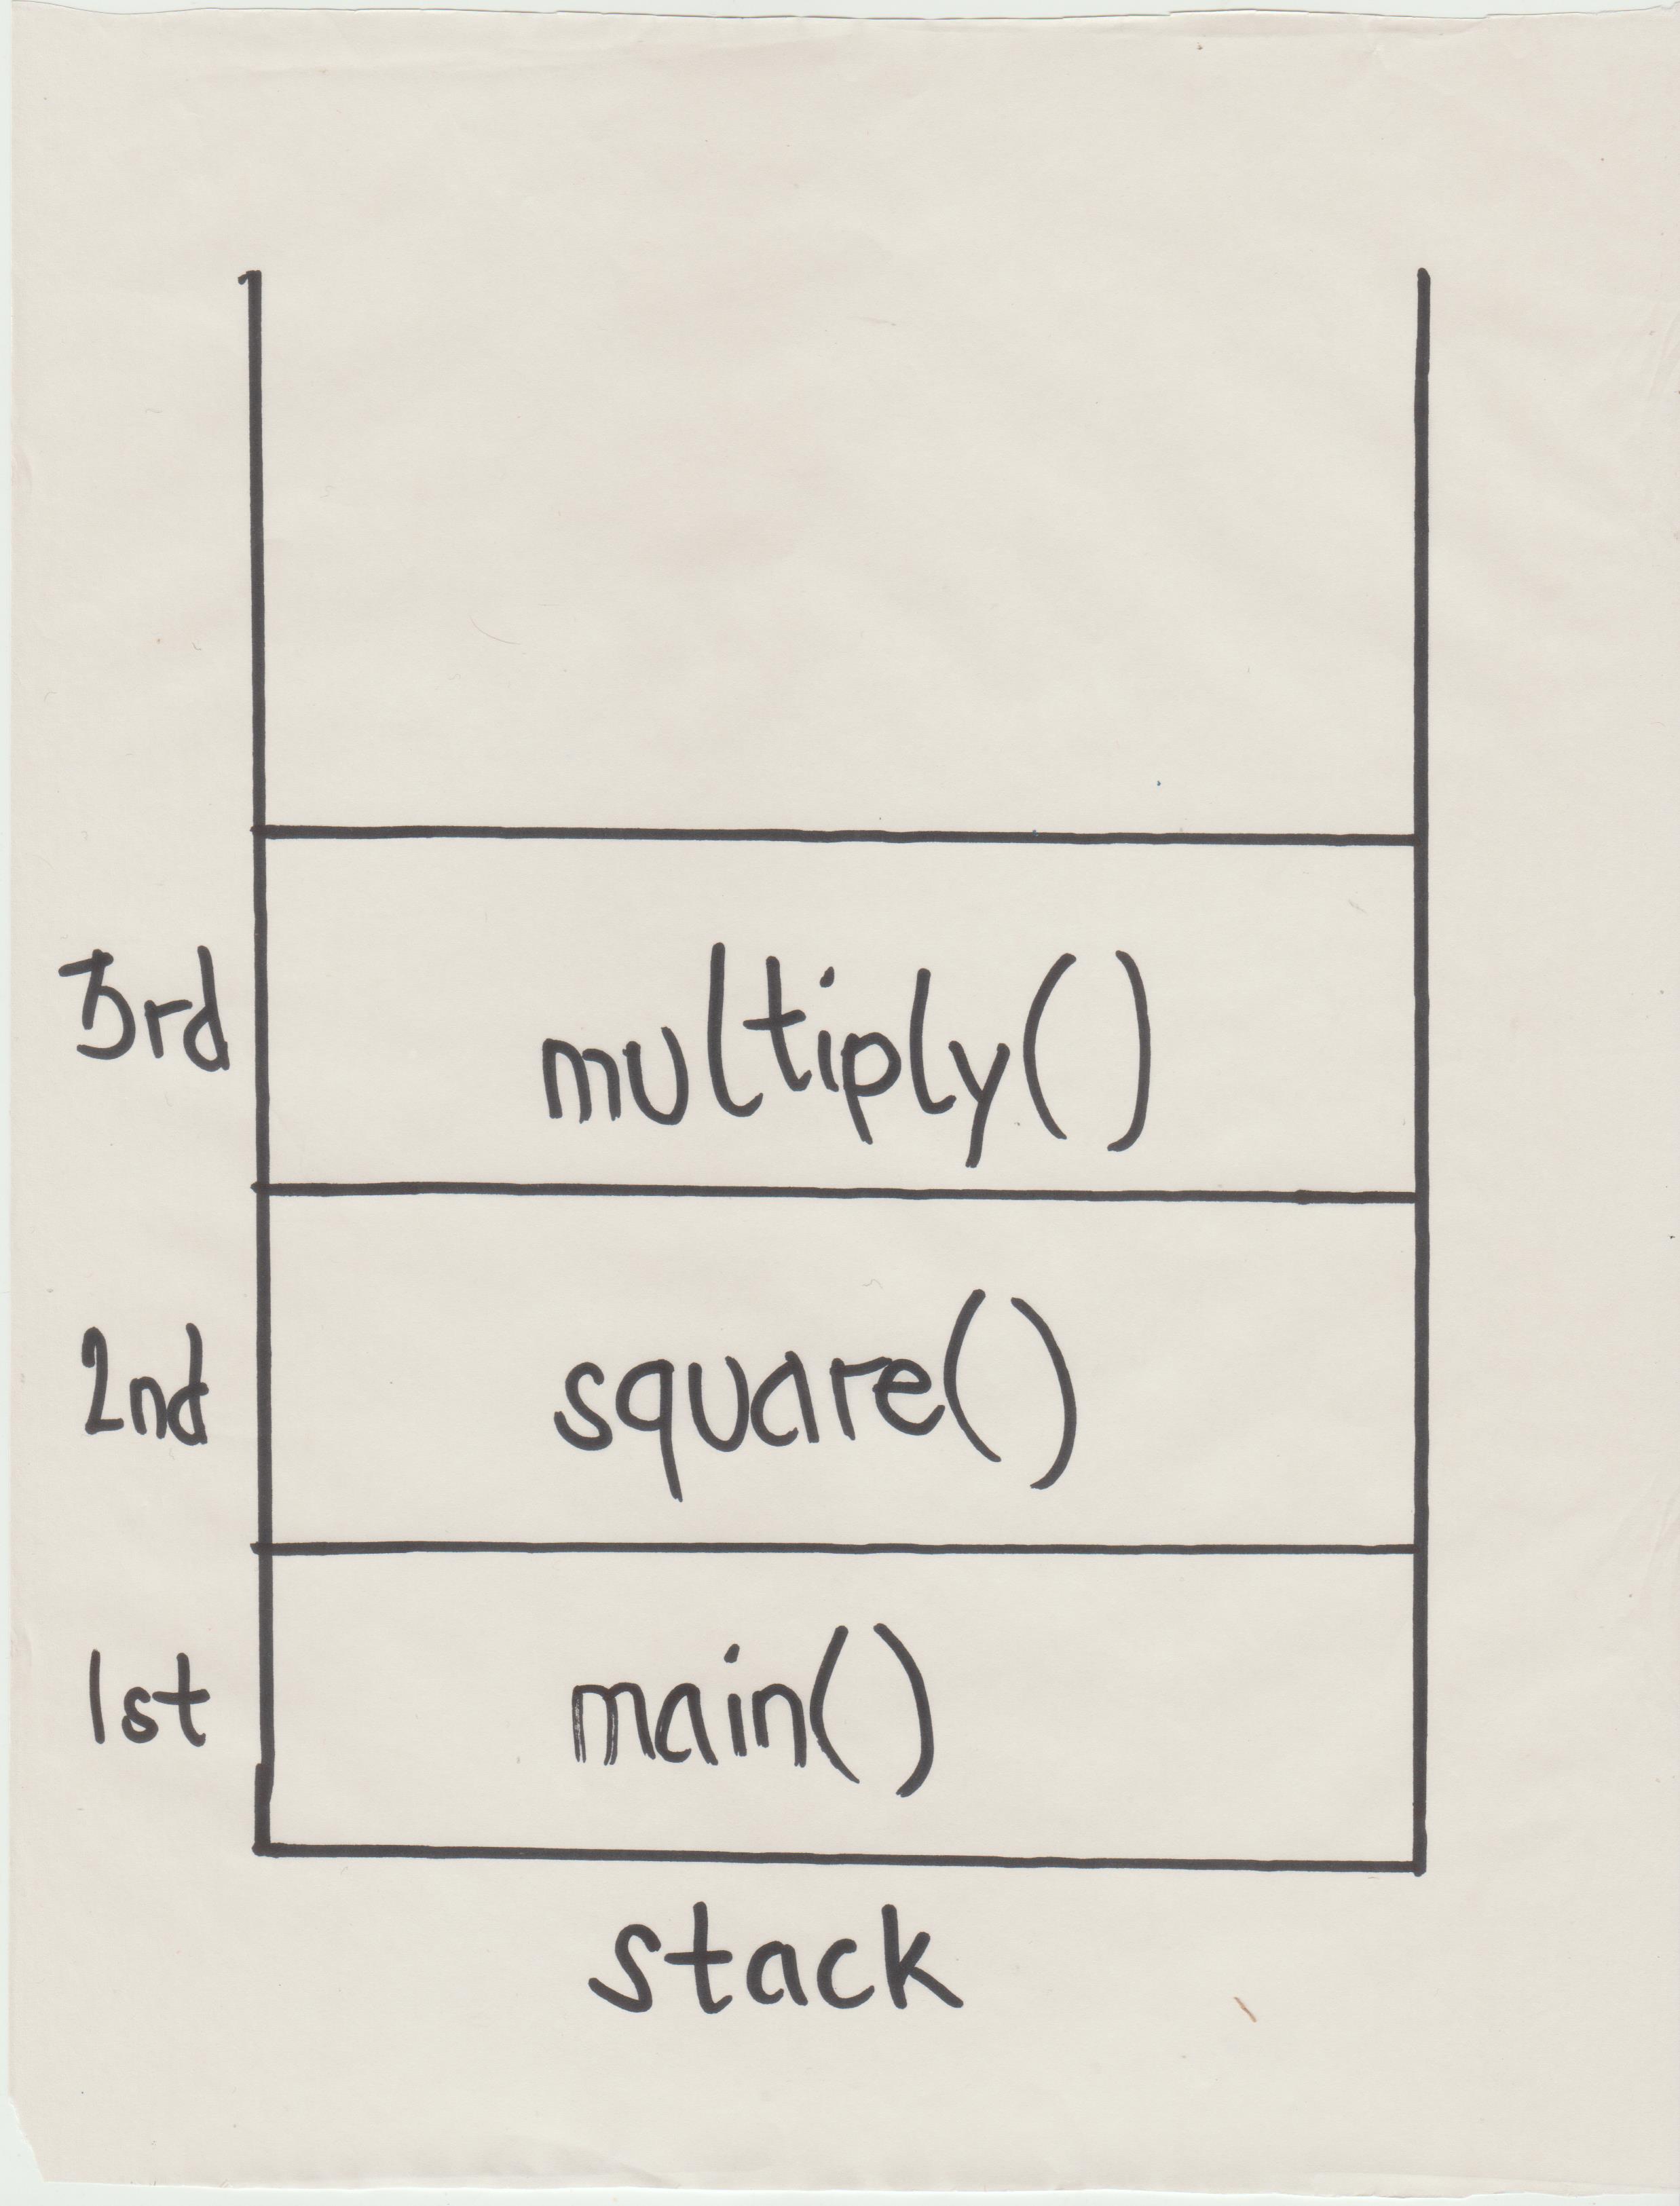 3rd multiply()
2nd square()
1st main()
stack